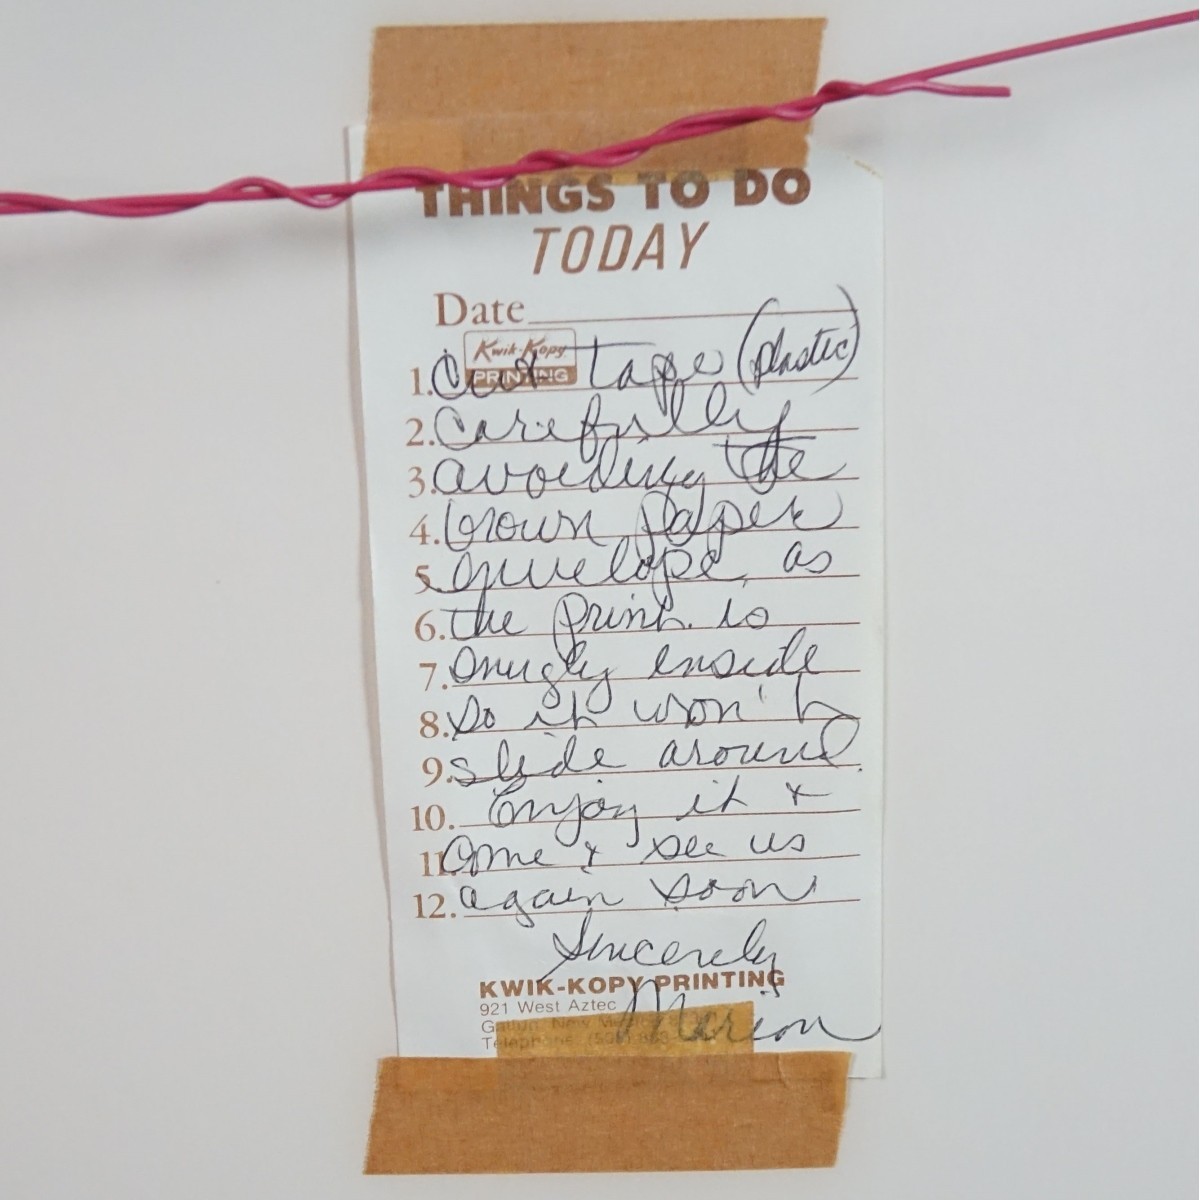 THINGS TO DO
TODAY
Date
Kwik-Kopy
PRINTING
1. Cut tape (plastic)
2. Carefully
3. avoiding the
4. brown paper
5. envelope, as
6. the print is
7. snugly inside
8. so it won't
9. slide around.
10. Enjoy it &
11. Come & see us
12. again soon
Sincerely
KWIK-KOPY PRINTING
921 West Aztec
Marion
Gallup, New Mexico
Telephone (505) 863-